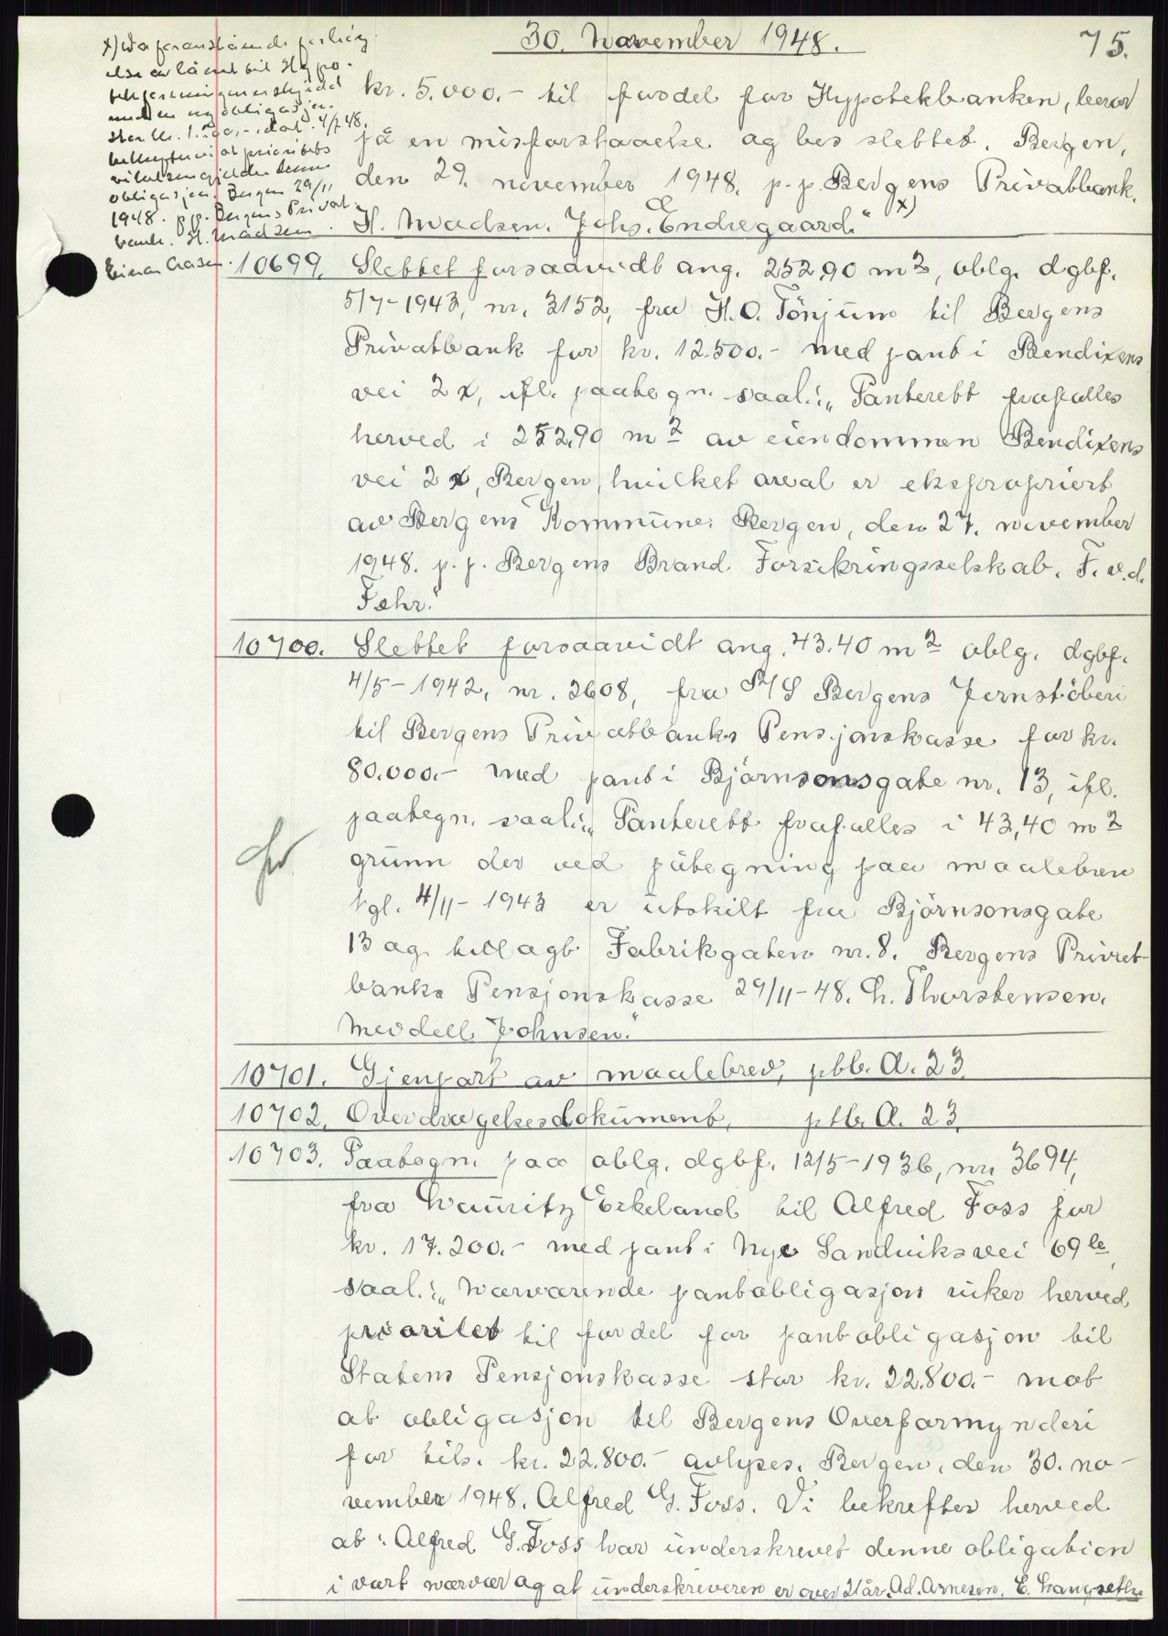 30. November 1948.
75.
x) Da foranstående
med ny obligasjon
stor kr.
obligasjon. Bergen 29/11
1948. p.p. Bergens Privat-
bank. H. Madsen.
Einar
kr. 5.000.- til fordel for Hypotekbanken, beror
på en misforstaaelse og bes slettet. Bergen,
den 29. november 1948. p.p. Bergens Privatbank.
H. Madsen. Johs. Endregaard." x)
10699. Slettet forsaavidt ang. 252,90 m2, oblg. dgbf.
5/7-1943, nr. 3152, fra H.O. Tönjum til Bergens
Privatbank for kr. 12.500.- med pant i Bendixens
vei 2x, ifl. paategn. saal.: „Panterett frafalles
herved i 252,90 m2 av eiendommen Bendixens
vei 2x, Bergen, hvilket areal er ekspropriert
av Bergens Kommune. Bergen, den 27. november
1948. p.p. Bergens Brand Forsikringsselskab. F. v.d.
Fehr."
10700. Slettet forsaavidt ang. 43.40 m2 oblg. dgbf.
4/5-1942, nr. 2608, fra A/S Bergens Jernstöberi
til Bergens Privatbanks Pensjonskasse for kr.
80.000.- med pant i Björnsonsgate nr. 13, ifl.
paategn. saal.: „Panterett frafalles i 43,40 m2
grunn der ved påtegning paa maalebrev
tgl. 4/11-1943 er utskilt fra Björnsonsgate
13 og tillagt Fabrikgaten nr. 8. Bergens Privat-
banks Pensjonskasse 29/11-48. Ch. Thorstensen.
Meidell Johnsen."
10701. Gjenpart av maalebrev, ptb. A. 23.
10702. Overdragelsesdokument, ptb. A. 23.
10703. Paategn. paa oblg. dgbf. 12/5-1936, nr. 3694,
fra Lauritz Eikeland til Alfred Foss for
kr. 17.200.- med pant i Nye Sandviksvei 69 le,
saal.: „Nærværende pantobligasjon viker herved
prioritet til fordel for pantobligasjon til
Statens Pensjonskasse stor kr. 22.800.- mot
at obligasjon til Bergens Overformynderi
for tils. kr. 22.800.- avlyses. Bergen, den 30. no-
vember 1948. Alfred G. Foss. Vi bekrefter herved
at: Alfred G. Foss har underskrevet denne obligation
i vårt nærvær og at underskriveren er over 21 år. Ad. Arnesen. E. Langseth."